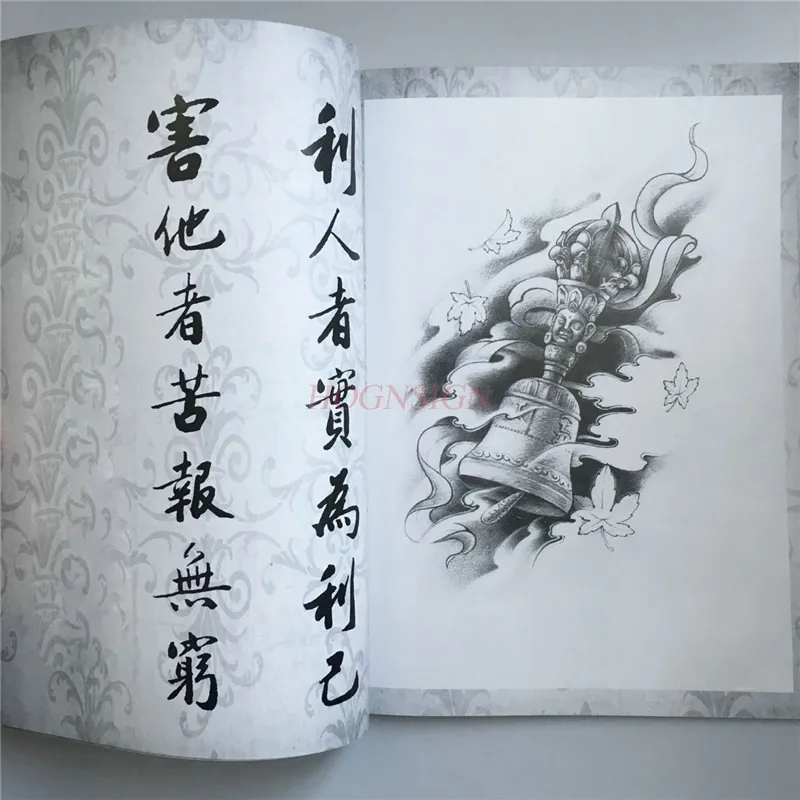 利人者實為利己
害他者苦報無窮
HOGNSIGN